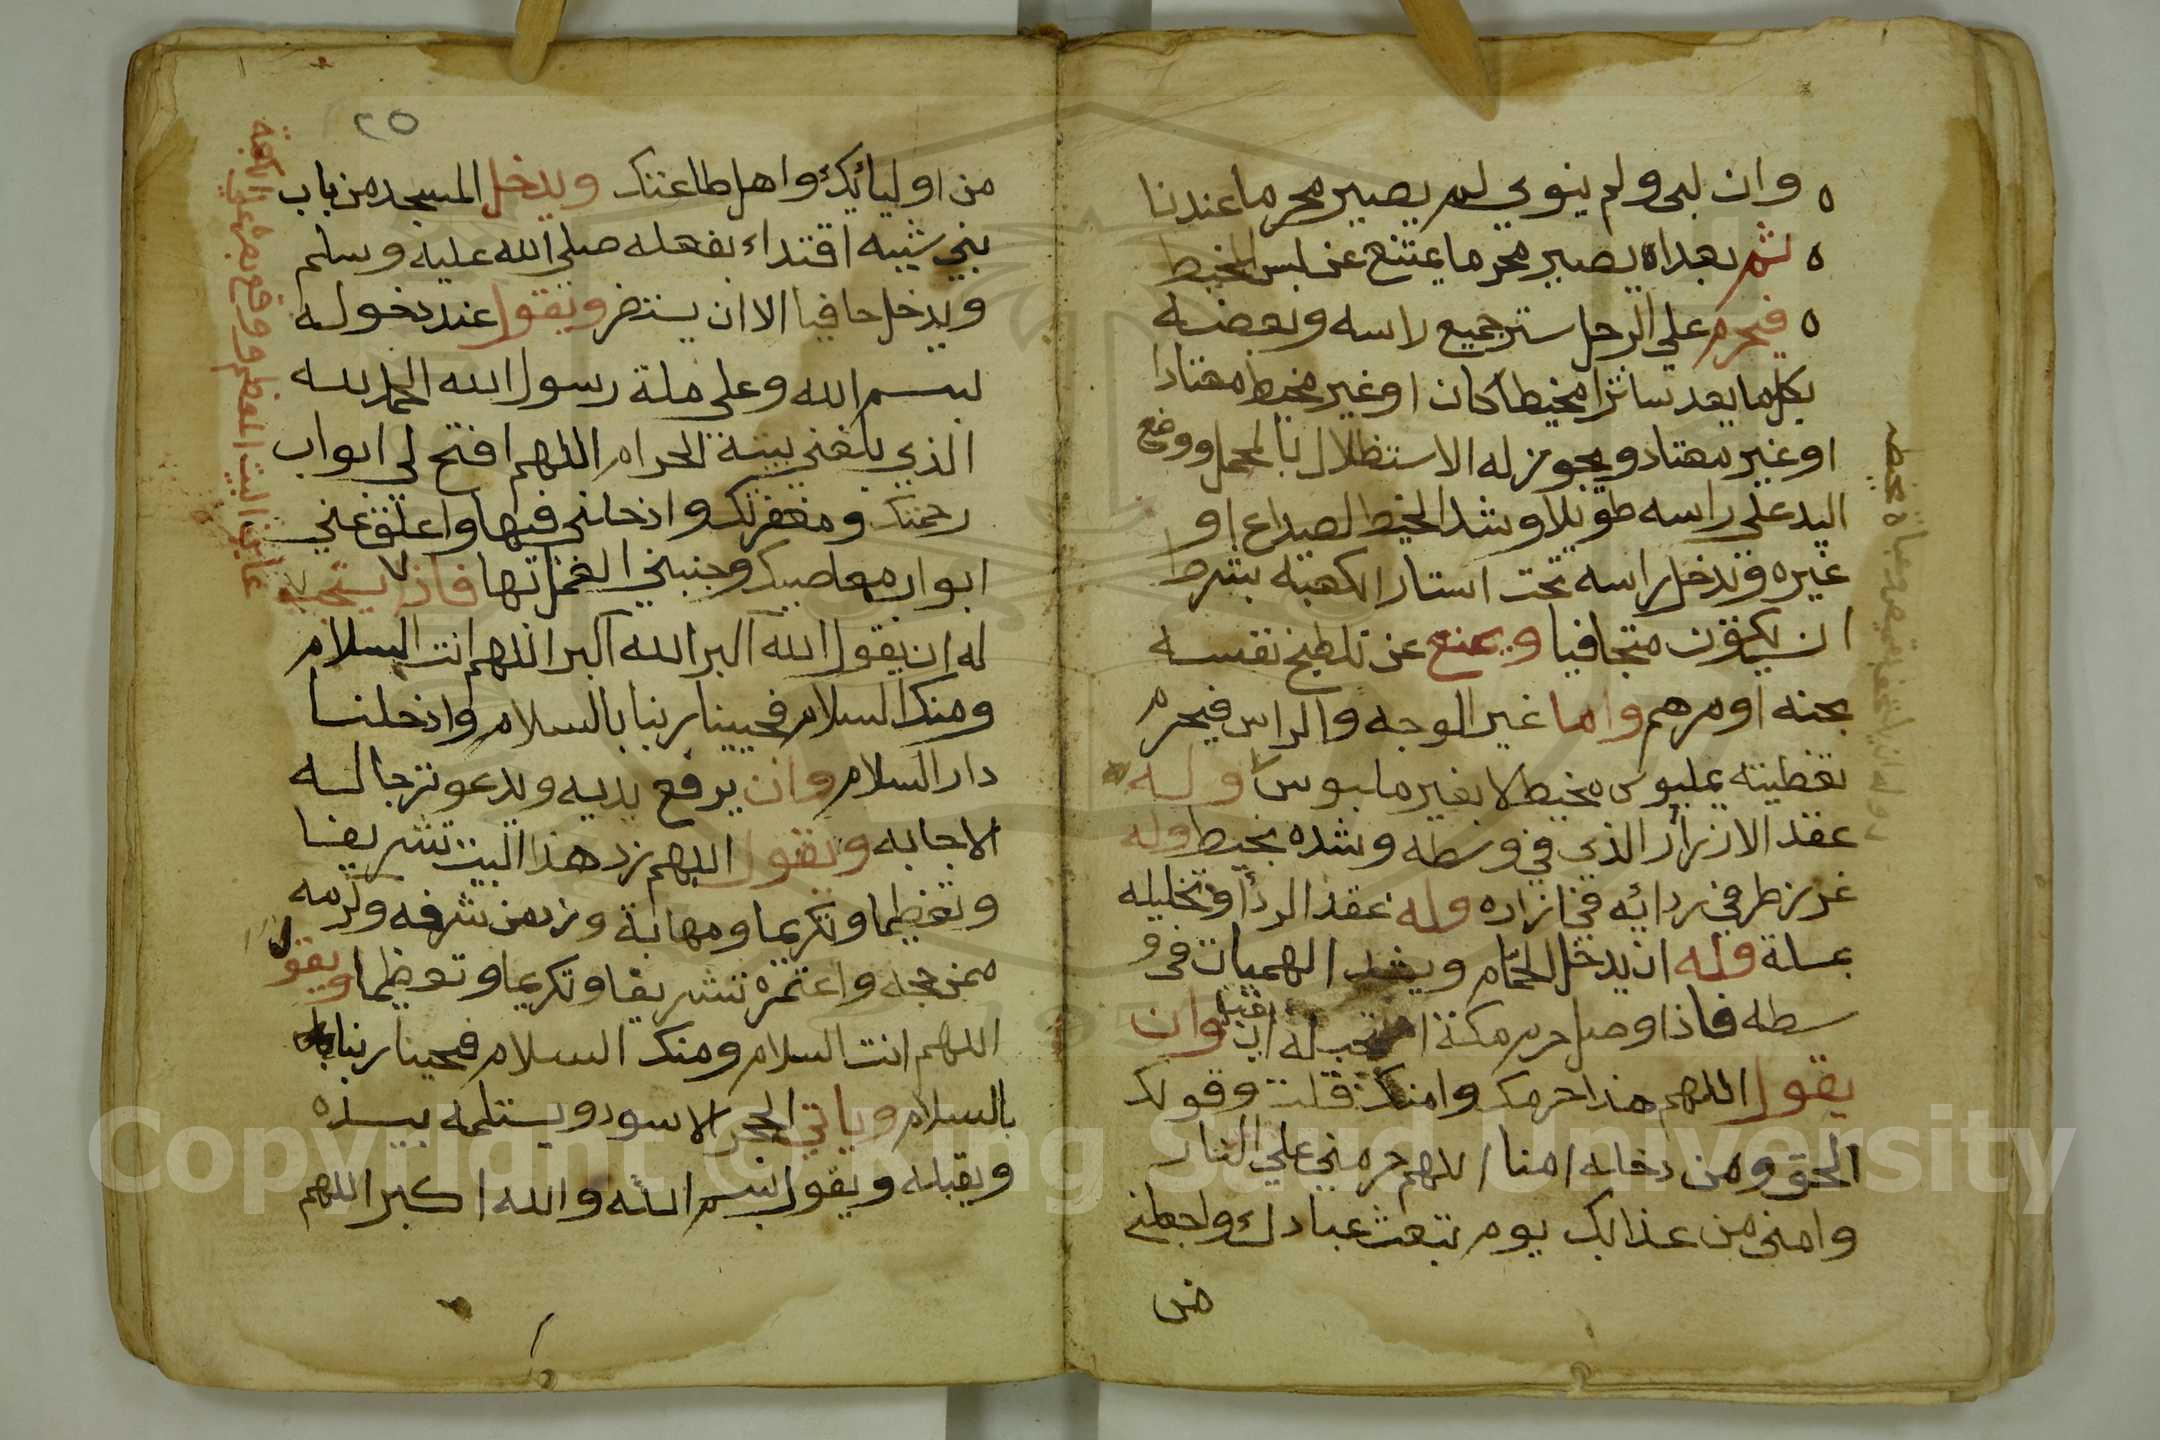 وان لبى ولم ينوي لم يصير محرما عندنا
ثم بعد ان يصير محرما يمتنع عن لبس المخيط
فيحرم على الرجل ستر جميع راسه وبعضه
بكل ما يعد ساترا مخيطا كان او غير مخيط معتادا
او غير معتاد ويجوز له الاستظلال بالمحمل ووضع
اليد على راسه طويلا وشد الخيط لصداع او
غيره وتدخل راسه تحت استار الكعبة بشرط
ان يكون متجافيا ويمنع عن تلطيخ نفسه
بحنه او مرهم واما غير الوجه والراس فيحرم
تغطيته بملبوس مخيط لا بغير ملبوس وله
عقد الازرار الذي في وسطه وشده بخيط وله
غرز طرفي ردائه في ازاره وله عقد الردأ وتخليله
بمسلة وله ان يدخل الحمام ويشد الهميان في و
سطه فاذا وصل حرم مكة استحب له ان يغتسل وان
يقول اللهم هذا حرمك وامنك قلت وقولك
الحق ومن دخله امنا اللهم حرمني على النار
وامنى من عذابك يوم تبعث عبادك واجعلني
من
٢٥
من اوليائك واهل طاعتك ويدخل المسجد من باب
بني شيبه اقتداء بفعله صلى الله عليه وسلم
ويدخل حافيا الا ان يستضر ويقول عند دخوله
بسم الله وعلى ملة رسول الله الحمد لله
الذي بلغني بيته الحرام اللهم افتح لي ابواب
رحمتك ومغفرتك وادخلني فيها واغلق عني
ابواب معاصيك وجنبني العمل بها فاذا يستحب
له ان يقول الله اكبر الله اكبر اللهم انت السلام
ومنك السلام فحيينا ربنا بالسلام وادخلنا
دار السلام وان يرفع يديه ويدعو ترجا له
الاجابه ويقول اللهم زد هذا البيت تشريفا
وتعظيما وتكريما ومهابة وزد من شرفه وكرمه
ممن حجه واعتمره تشريفا وتكريما وتعظيما ويقول
اللهم انت السلام ومنك السلام فحينا ربنا
بالسلام وياتي الحجر الاسود ويستلمه بيده
ويقبله ويقول بسم الله والله اكبر اللهم
عاين البيت المعظم ووقع بصره على الكعبة
Copyright © King Saud University